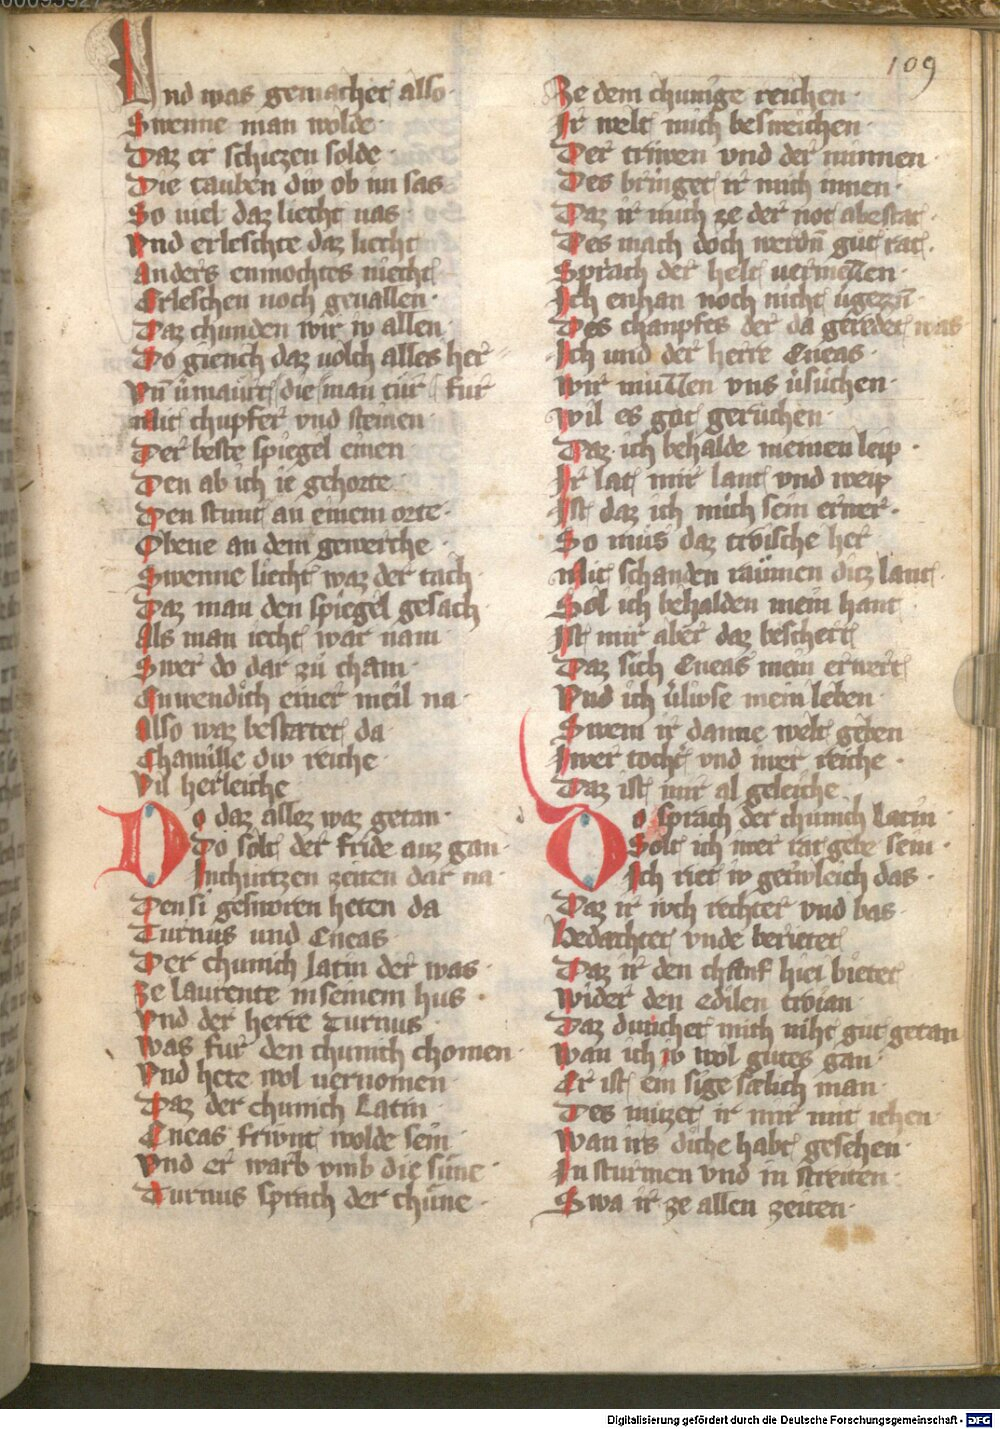 109
Und was gemachet also
Swenne man wolde
Daz er schiezen solde
Die tauben div ob im sas
So viel daz liecht nas
Vnd erleschte daz liecht
Anders enmochtes niecht
Erleschen noch geuallen
Daz chunden wir iv allen
Do giench daz volch alles her
Vn̄ u̍maurt die man tur fur
Mit chupfer vnd steinen
Der beste spiegel einen
Den ab ich ie gehorte
Den stunt an einem orte
Obene an dem gewerche
Swenne liecht waz der tach
Daz man den spiegel gesach
Als man recht war nam
Swer do dar zu cham
Inwendich einer meil na
Also waz bestatet da
Chamille div reiche
Vil herleiche
Do daz allez waz getan
Do solt der fride auz gan
In churtzen zeiten dar na
Den si gesworen heten da
Turnus und Eneas
Der chunich latin der was
Ze laurente in seinem hus
Vnd der herre Turnus
Was fur den chunich chomen
Vnd hete wol uernomen
Daz der chunich Latin
Eneas friwnt wolde sein
Vnd er warb vmb die sune
Turnus sprach der chune
Ze dem chunige reichen
Ir welt mich besweichen
Der triwen vnd der minnen
Des bringet ir mich innen
Daz ir mich ze der not abestat
Des mach doch werdn̄ gut rat
Sprach der helt uermezzen
Ich enhan noch nicht u̍gezzn̄
Des champfes der da geredet was
Ich und der herre Eneas
Wir muzzen vns u̍suchen
Wil es got geruchen
Daz ich behalde meinen leip
Ir lat mir lant vnd weip
Ist daz ich mich sein erwer
So mus daz troische her
Mit schanden raumen ditz lant
Sol ich behalden mein hant
Ist mir aber daz beschert
Daz sich Eneas mein erwert
Vnd ich u̍liwse mein leben
Swem ir danne welt geben
Iwer tocht̍ vnd iwer reiche
Daz ist mir al geleiche
d
Do sprach der chunich Latin
Solt ich iwer rat gebe sein
Ich riet iv getiwleich das
Daz ir iveh rechter vnd bas
Bedachtet vnde berietet
Daz ir den chanf hiei bietet
Wider den edilen troian
Daz dunchet mich niht gut getan
Wan ich iv wol gutes gan
Er ist ein sige sælich man
Des muzet ir mir mit iehen
Wan irs diche habt gesehen
In sturmen vnd in streiten
Swa ir ze allen zeiten
Digitalisierung gefördert durch die Deutsche Forschungsgemeinschaft - DFG